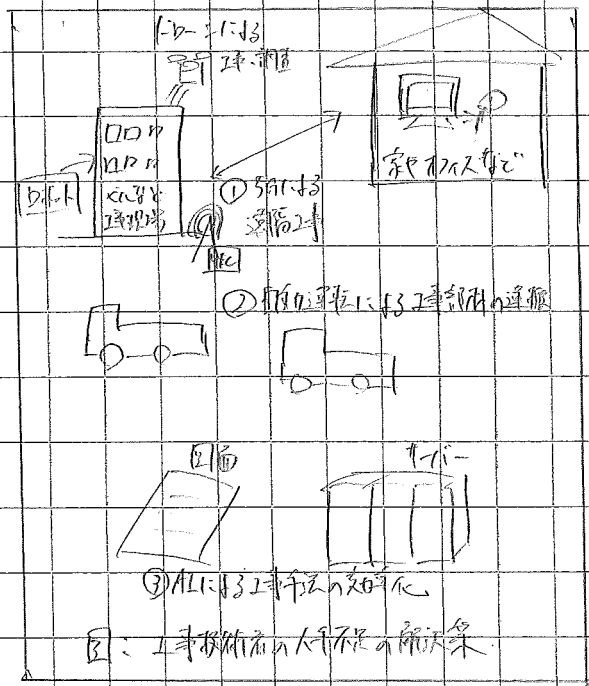 ドローンによる
工事調査
ロボット
ビルなど
工事現場
家やオフィスなど
① 5Gによる
遠隔工事
MEC
② 自動運転による工事部材の運搬
図面
サーバー
③ AIによる工事手法の効率化
図: 工事技術者の人手不足の解決策